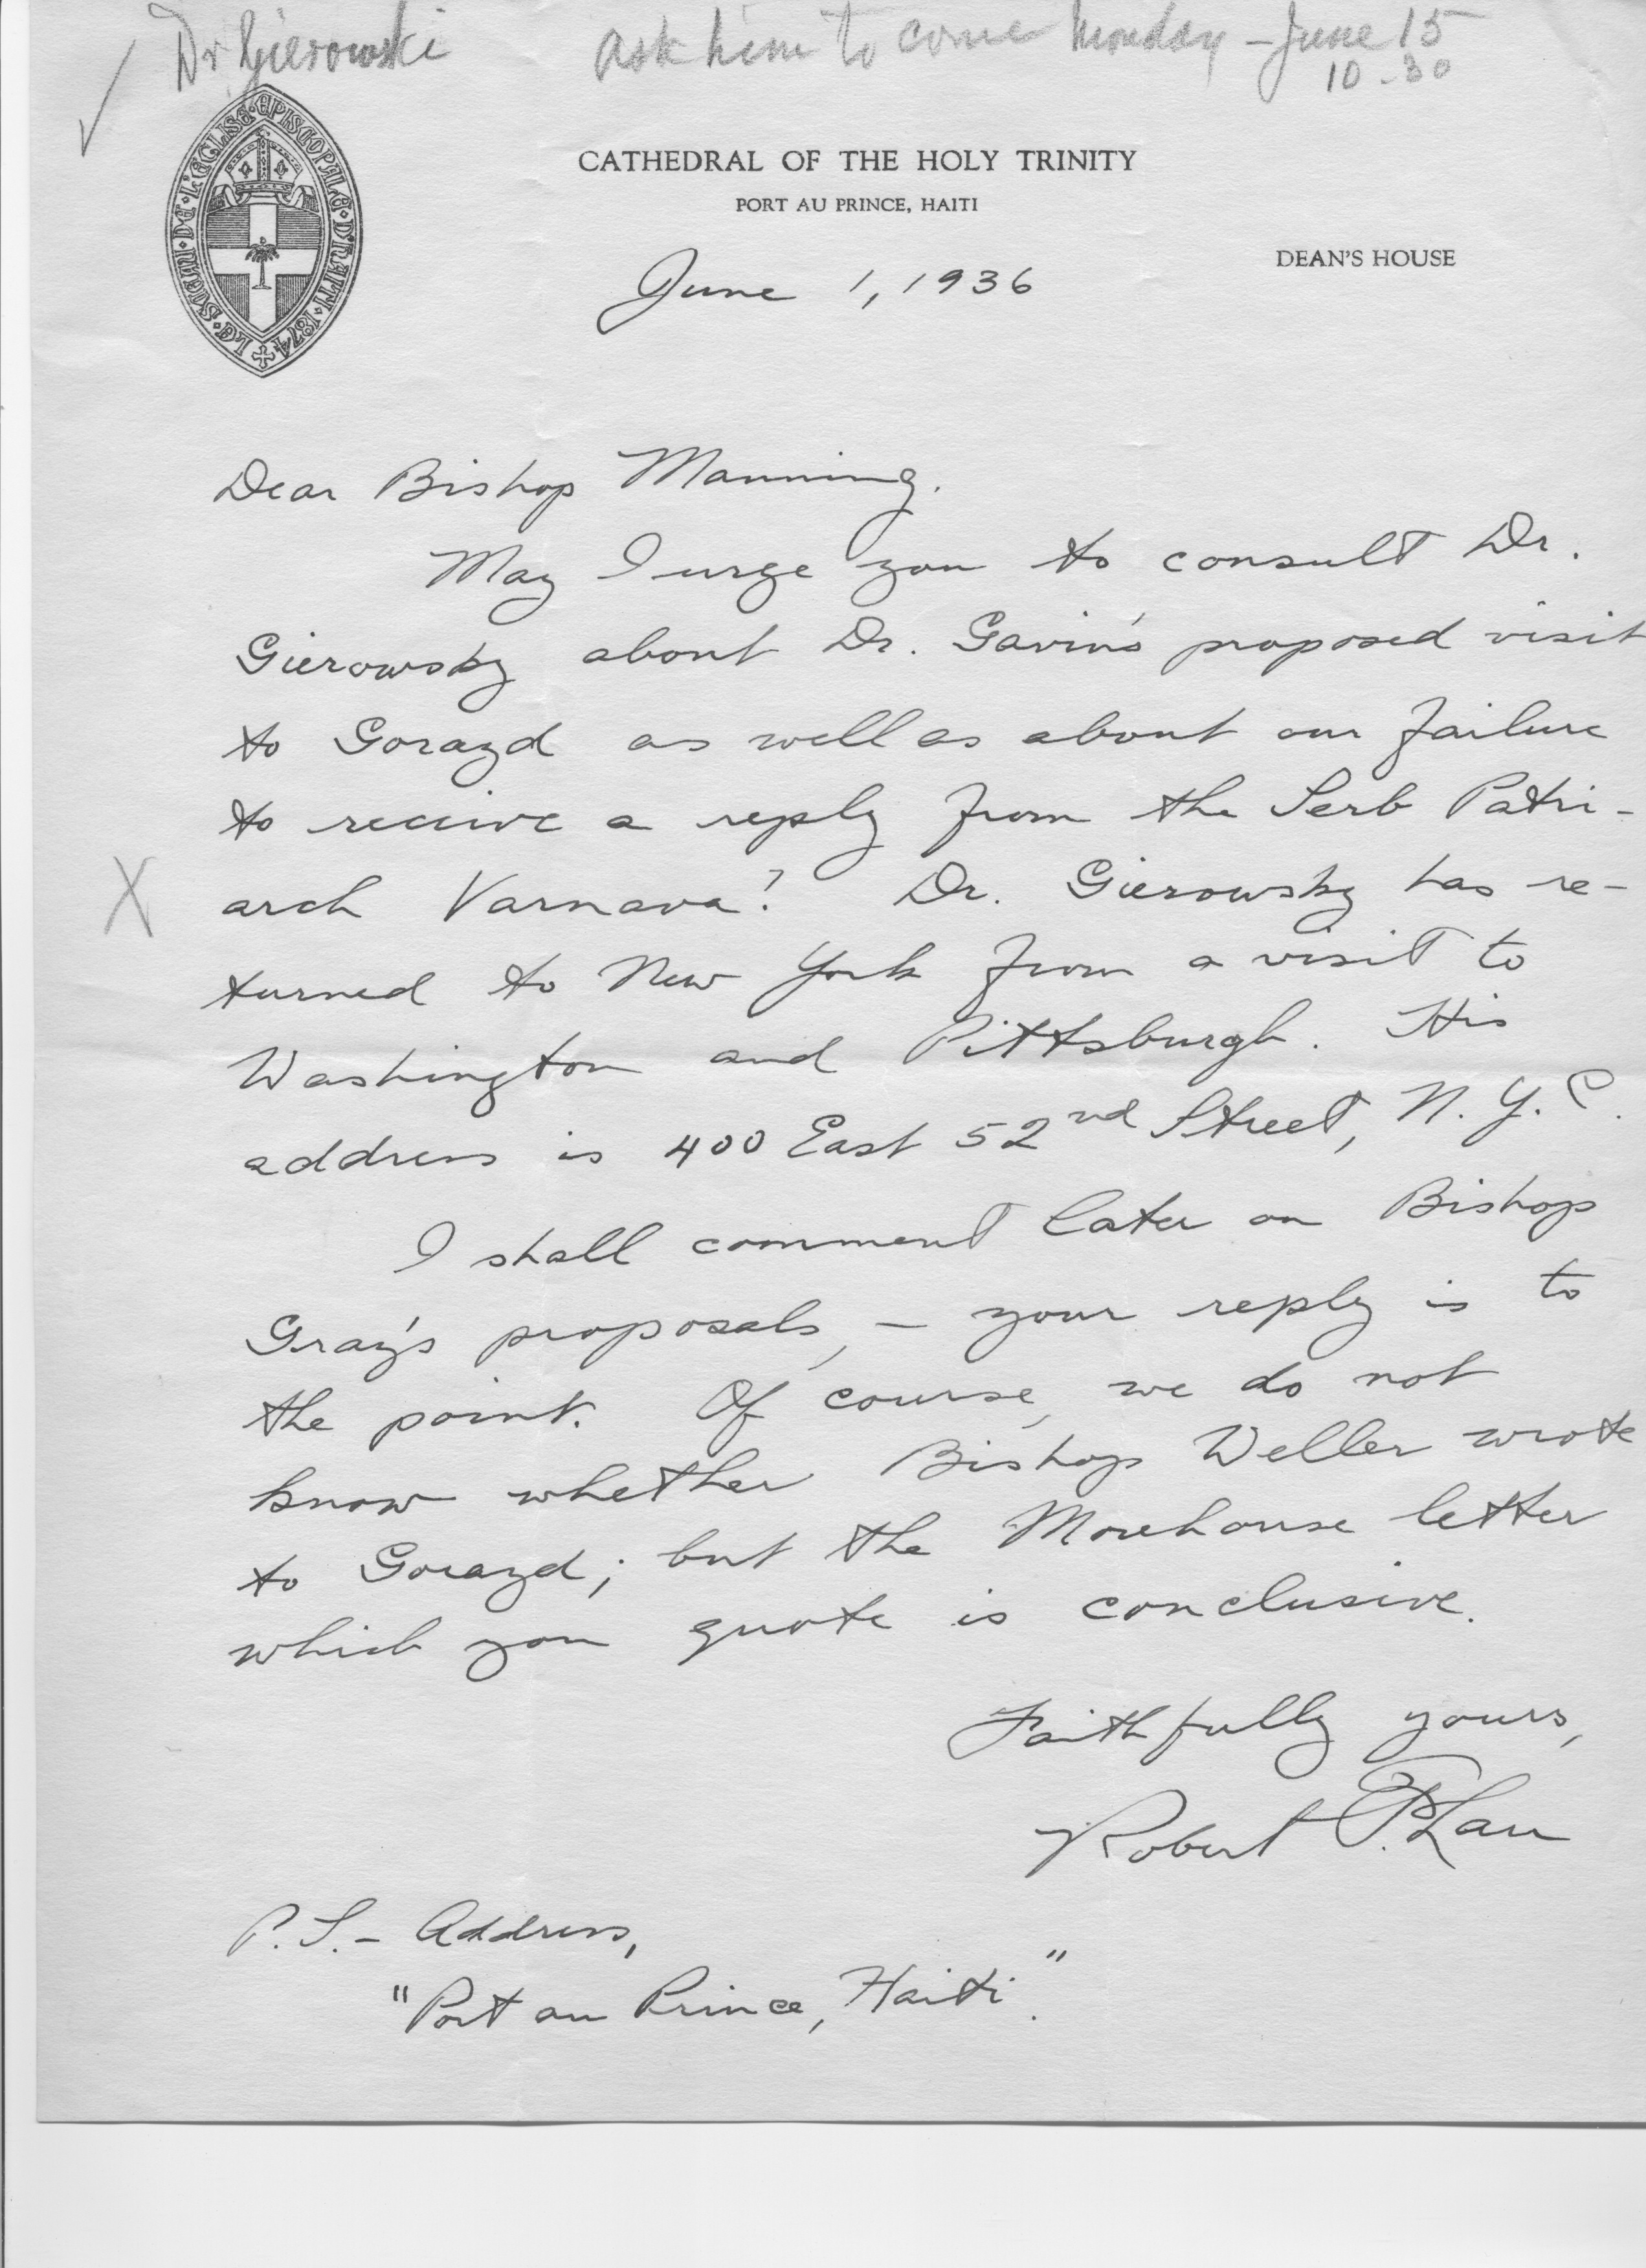 Dr Gierowski
ask him to come Monday - June 15
10-30
LE SCEAU DE L'EGLISE EPISCOPALE D'HAITI 1874
CATHEDRAL OF THE HOLY TRINITY
PORT AU PRINCE, HAITI
DEAN'S HOUSE
June 1, 1936
Dear Bishop Manning.
May I urge you to consult Dr.
Gierowsky about Dr. Gavin's proposed visit
to Gorazd as well as about our failure
to receive a reply from the Serb Patri-
X
arch Varnava? Dr. Gierowsky has re-
turned to New York from a visit to
Washington and Pittsburgh. His
address is 400 East 52nd Street, N.Y.C.
I shall comment later on Bishop
Gray's proposals, - your reply is to
the point. Of course, we do not
know whether Bishop Weller wrote
to Gorazd; but the Morehouse letter
which you quote is conclusive.
Faithfully yours,
Robert
P.S. - Address,
"Port au Prince, Haiti."